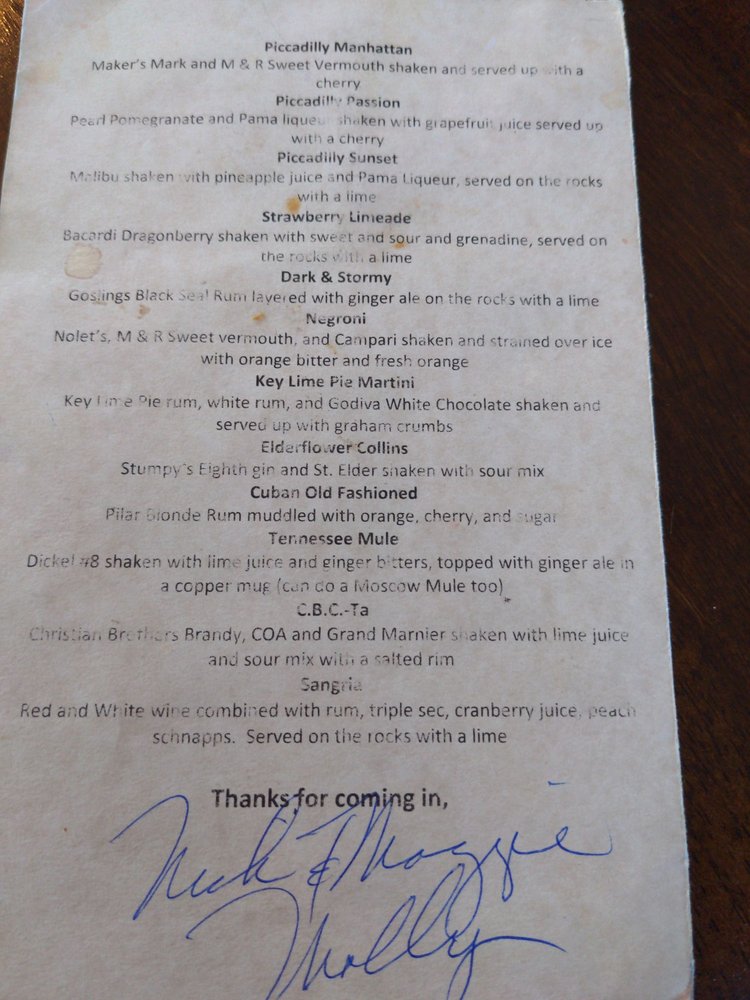 Piccadilly Manhattan
Maker's Mark and M & R Sweet Vermouth shaken and served up with a
cherry
Piccadilly Passion
Pearl Pomegranate and Pama liqueur shaken with grapefruit juice served up
with a cherry
Piccadilly Sunset
Malibu shaken with pineapple juice and Pama Liqueur, served on the rocks
with a lime
Strawberry Limeade
Bacardi Dragonberry shaken with sweet and sour and grenadine, served on
the rocks with a lime
Dark & Stormy
Goslings Black Seal Rum layered with ginger ale on the rocks with a lime
Negroni
Nolet's, M & R Sweet vermouth, and Campari shaken and strained over ice
with orange bitter and fresh orange
Key Lime Pie Martini
Key Lime Pie rum, white rum, and Godiva White Chocolate shaken and
served up with graham crumbs
Elderflower Collins
Stumpy's Eighth gin and St. Elder shaken with sour mix
Cuban Old Fashioned
Pilar Blonde Rum muddled with orange, cherry, and sugar
Tennessee Mule
Dickel #8 shaken with lime juice and ginger bitters, topped with ginger ale in
a copper mug (can do a Moscow Mule too)
C.B.C.-Ta
Christian Brothers Brandy, COA and Grand Marnier shaken with lime juice
and sour mix with a salted rim
Sangria
Red and White wine combined with rum, triple sec, cranberry juice, peach
schnapps. Served on the rocks with a lime
Thanks for coming in,
Nick & Maggie
Molly